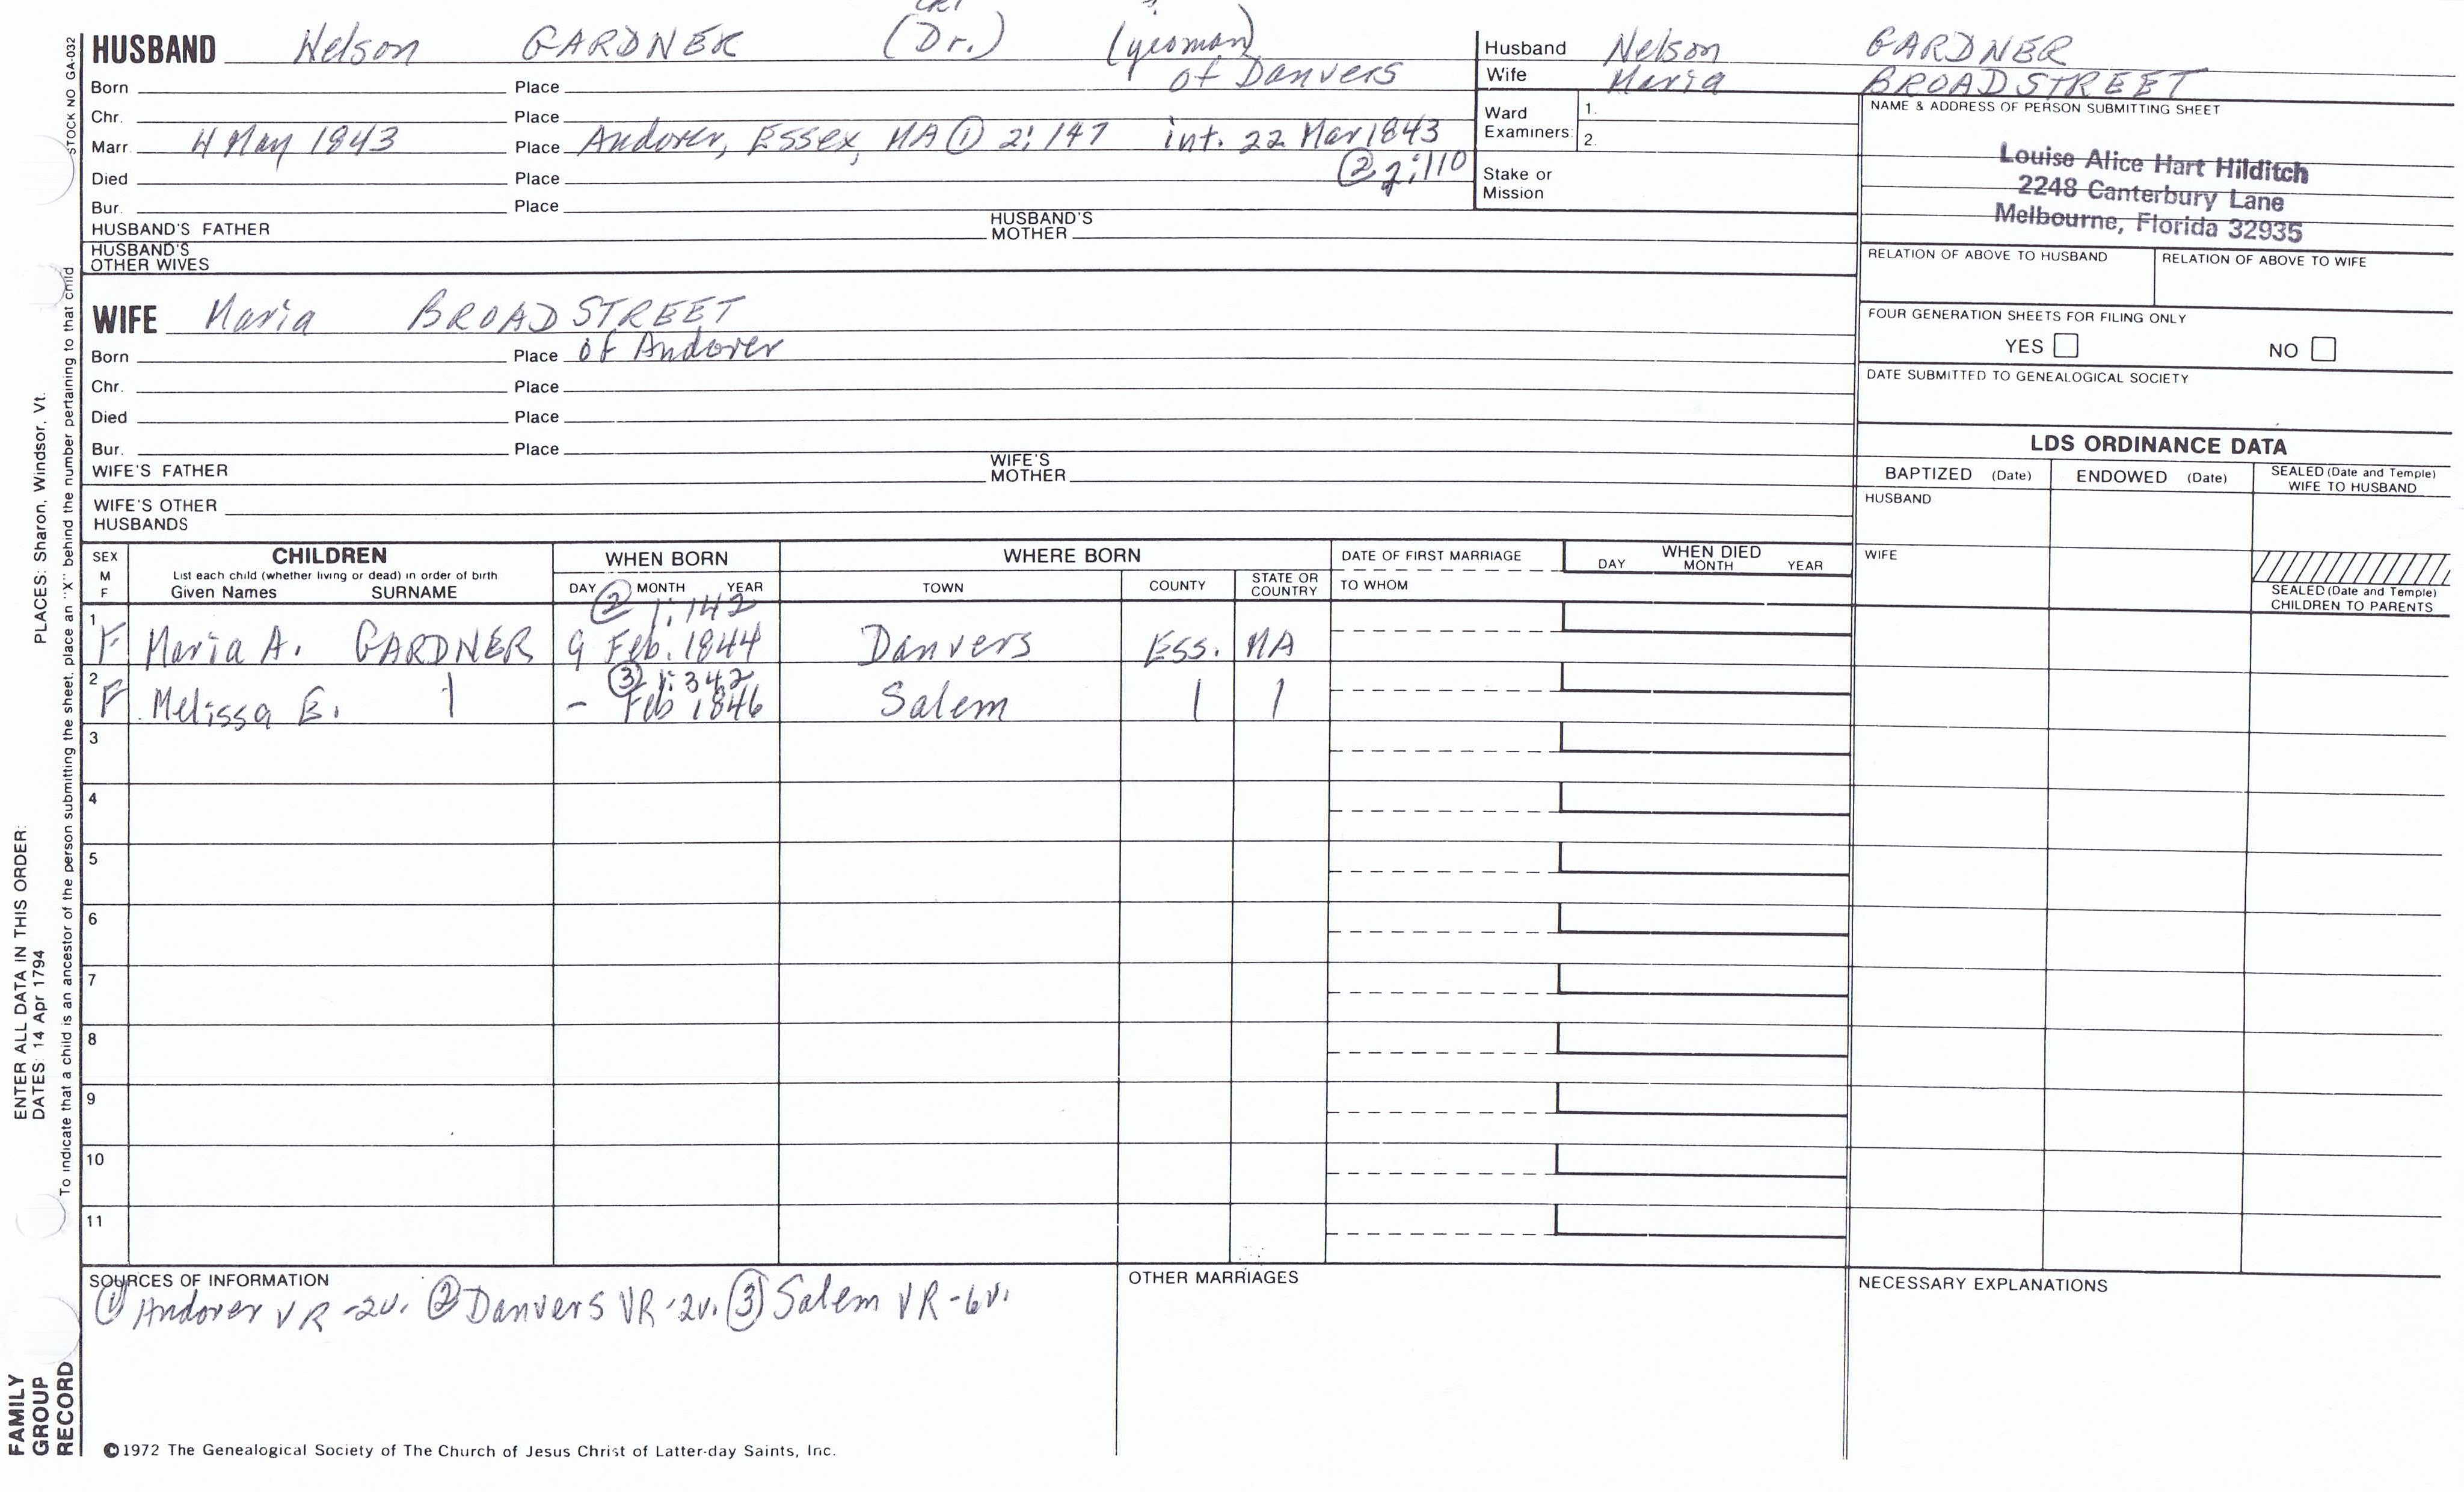 STOCK NO GA-032
HUSBAND Nelson GARDNER (Dr.) (yeoman)
of Danvers
Born Place
Chr. Place
Marr. 4 May 1843 Place Andover, Essex, MA ① 2:147 int. 22 Mar 1843
② 2:110
Died Place
Bur. Place
HUSBAND'S FATHER HUSBAND'S MOTHER
HUSBAND'S OTHER WIVES
WIFE Maria BROADSTREET
Born Place of Andover
Chr. Place
Died Place
Bur. Place
WIFE'S FATHER WIFE'S MOTHER
WIFE'S OTHER HUSBANDS
Husband Nelson GARDNER
Wife Maria BROADSTREET
Ward Examiners: 1.
2.
Stake or Mission
NAME & ADDRESS OF PERSON SUBMITTING SHEET
Louise Alice Hart Hilditch
2248 Canterbury Lane
Melbourne, Florida 32935
RELATION OF ABOVE TO HUSBAND RELATION OF ABOVE TO WIFE
FOUR GENERATION SHEETS FOR FILING ONLY
YES NO
DATE SUBMITTED TO GENEALOGICAL SOCIETY
LDS ORDINANCE DATA
BAPTIZED (Date) ENDOWED (Date) SEALED (Date and Temple) WIFE TO HUSBAND
HUSBAND
WIFE
SEALED (Date and Temple) CHILDREN TO PARENTS
SEX M F CHILDREN WHEN BORN WHERE BORN DATE OF FIRST MARRIAGE WHEN DIED
List each child (whether living or dead) in order of birth
Given Names SURNAME DAY MONTH YEAR TOWN COUNTY STATE OR COUNTRY TO WHOM DAY MONTH YEAR
② 1:142
1 F Maria A. GARDNER 9 Feb. 1844 Danvers Ess. MA
③ 1:342
2 F Melissa E. | - Feb 1846 Salem | |
3
4
5
6
7
8
9
10
11
SOURCES OF INFORMATION
① Andover VR -2v. ② Danvers VR -2v. ③ Salem VR -6v.
OTHER MARRIAGES
NECESSARY EXPLANATIONS
©1972 The Genealogical Society of The Church of Jesus Christ of Latter-day Saints, Inc.
FAMILY
GROUP
RECORD
ENTER ALL DATA IN THIS ORDER:
DATES: 14 Apr 1794 PLACES: Sharon, Windsor, Vt.
To indicate that a child is an ancestor of the person submitting the sheet, place an "X" behind the number pertaining to that child